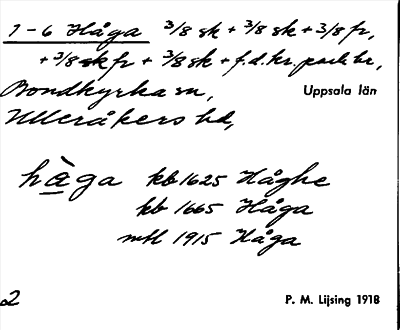 1-6 Håga 3/8 sk + 3/8 sk + 3/8 fr,
+ 3/8 sk fr + 3/8 sk + f.d. kr. park br,
Bondkyrka sn,
Uppsala län
Ulleråkers hd,
håga kb 1625 Håghe
kb 1665 Håga
mtl 1915 Håga
2
P. M. Lijsing 1918